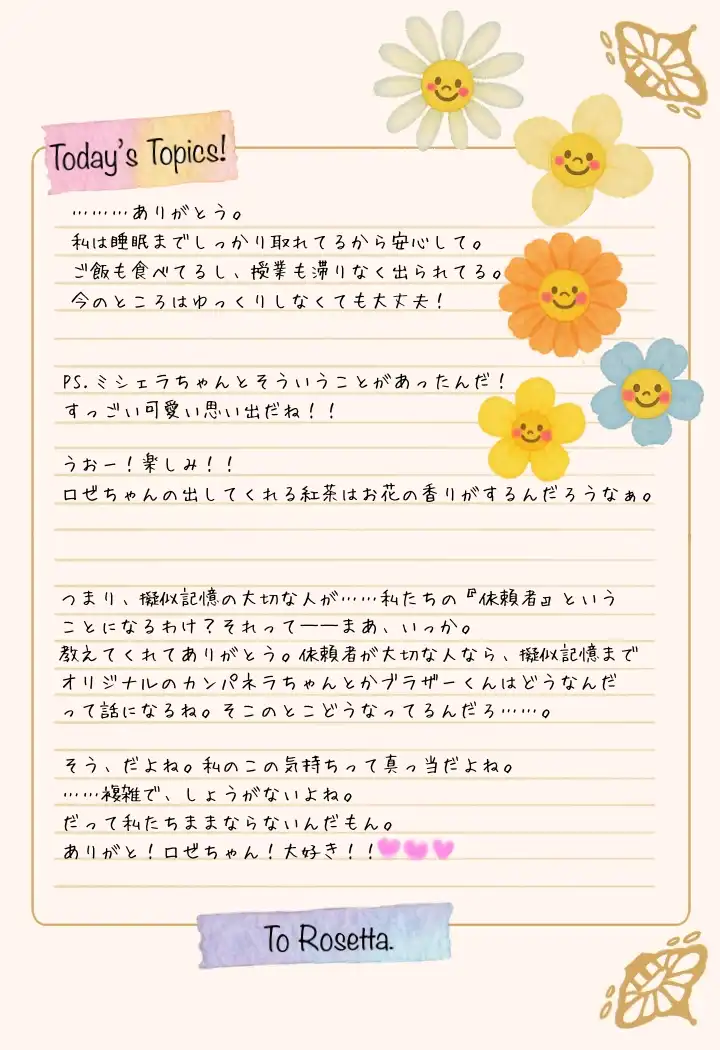 Today's Topics!
………ありがとう。
私は睡眠までしっかり取れてるから安心して。
ご飯も食べてるし、授業も滞りなく出られてる。
今のところはゆっくりしなくても大丈夫！
PS.ミシェラちゃんとそういうことがあったんだ！
すっごい可愛い思い出だね！！
うおー！楽しみ！！
ロゼちゃんの出してくれる紅茶はお花の香りがするんだろうなぁ。
つまり、擬似記憶の大切な人が……私たちの『依頼者』という
ことになるわけ？それって――まあ、いっか。
教えてくれてありがとう。依頼者が大切な人なら、擬似記憶まで
オリジナルのカンパネラちゃんとかブラザーくんはどうなんだ
って話になるね。そこのとこどうなってるんだろ……。
そう、だよね。私のこの気持ちって真っ当だよね。
……複雑で、しょうがないよね。
だって私たちままならないんだもん。
ありがと！ロゼちゃん！大好き！！
To Rosetta.